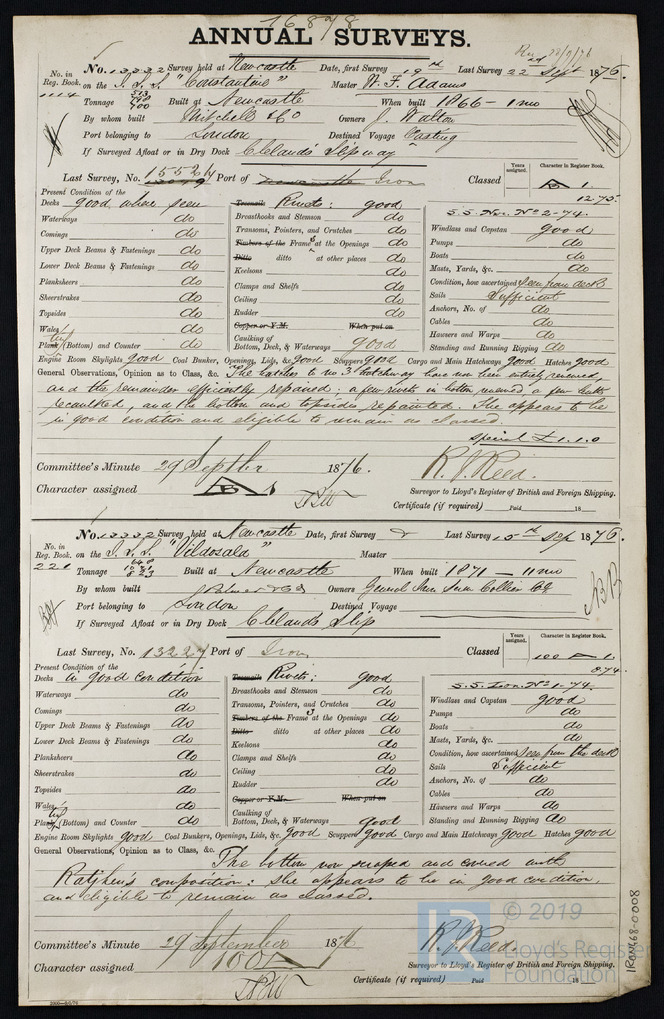 16878
ANNUAL SURVEYS.
Rec 28/9/76
No. in Reg. Book. 1114
No. 13332 Survey held at Newcastle Date, first Survey 19th Last Survey 22nd Sept 1876.
on the S.S.S "Constantine" Master W. F. Adams
Tonnage 513 700 Built at Newcastle When built 1866 - 1 mo
By whom built Mitchell & Co Owners J. Walton
Port belonging to London Destined Voyage Coasting
If Surveyed Afloat or in Dry Dock Cleland's Slipway
Last Survey, No. 15524 Port of Iron Classed
Years assigned.
Character in Register Book.
B 1
12.75.
Present Condition of the
Decks good where seen
Waterways do
Comings do
Upper Deck Beams & Fastenings do
Lower Deck Beams & Fastenings do
Planksheers do
Sheerstrakes do
Topsides do
Wales do
Plating (Bottom) and Counter do
Treenails Rivets: good
Breasthooks and Stemson do
Transoms, Pointers, and Crutches do
Timbers of the Frames at the Openings do
Ditto ditto at other places do
Keelsons do
Clamps and Shelfs do
Ceiling do
Rudder do
Copper or Y.M. When put on
Caulking of Bottom, Deck, & Waterways good
S.S. Nwc. No 2-74.
Windlass and Capstan good
Pumps do
Boats do
Masts, Yards, &c. do
Condition, how ascertained Seen from deck
Sails Sufficient
Anchors, No. of do
Cables do
Hawsers and Warps do
Standing and Running Rigging do
Engine Room Skylights good Coal Bunker, Openings, Lids, &c. good Scuppers good Cargo and Main Hatchways good Hatches good
General Observations, Opinion as to Class, &c. The hatches to no 3 hatchway have now been entirely renewed,
and the remainder efficiently repaired: a few rivets in bottom renewed a few butts
recaulked, and the bottom and topsides repainted. She appears to be
in good condition and eligible to remain as classed.
Special £1.1.0
Committee's Minute 29 Septber 1876.
R. J. Reed.
Character assigned B 1
Surveyor to Lloyd's Register of British and Foreign Shipping.
Certificate (if required) Paid 18
No. in Reg. Book. 220
No. 13332 Survey held at Newcastle Date, first Survey Last Survey 15th Sep 1876.
on the S.S.S "Vildosala" Master
Tonnage 823 Built at Newcastle When built 1871 - 11 mo
By whom built Palmer & Co Owners Genrl Iron Screw Collier Co
Port belonging to London Destined Voyage
If Surveyed Afloat or in Dry Dock Cleland's Slip
Last Survey, No. 13227 Port of Iron Classed
Years assigned.
Character in Register Book.
100 A 1
8.74.
Present Condition of the
Decks in good condition
Waterways do
Comings do
Upper Deck Beams & Fastenings do
Lower Deck Beams & Fastenings do
Planksheers do
Sheerstrakes do
Topsides do
Wales do
Plating (Bottom) and Counter do
Treenails Rivets: good
Breasthooks and Stemson do
Transoms, Pointers, and Crutches do
Timbers of the Frames at the Openings do
Ditto ditto at other places do
Keelsons do
Clamps and Shelfs do
Ceiling do
Rudder do
Copper or Y.M. When put on
Caulking of Bottom, Deck, & Waterways good
S.S. Lon. No 1-74.
Windlass and Capstan good
Pumps do
Boats do
Masts, Yards, &c. do
Condition, how ascertained Seen from the deck
Sails Sufficient
Anchors, No. of do
Cables do
Hawsers and Warps do
Standing and Running Rigging do
Engine Room Skylights good Coal Bunkers, Openings, Lids, &c. good Scuppers good Cargo and Main Hatchways good Hatches good
General Observations, Opinion as to Class, &c.
The bottom now scraped and coated with
Ratjhen's composition: she appears to be in good condition,
and eligible to remain as classed.
Committee's Minute 29 September 1876
R. J. Reed.
Character assigned 100 A
Surveyor to Lloyd's Register of British and Foreign Shipping.
Certificate (if required) Paid 18
© 2019
Lloyd's Register
Foundation
IRON468-0008